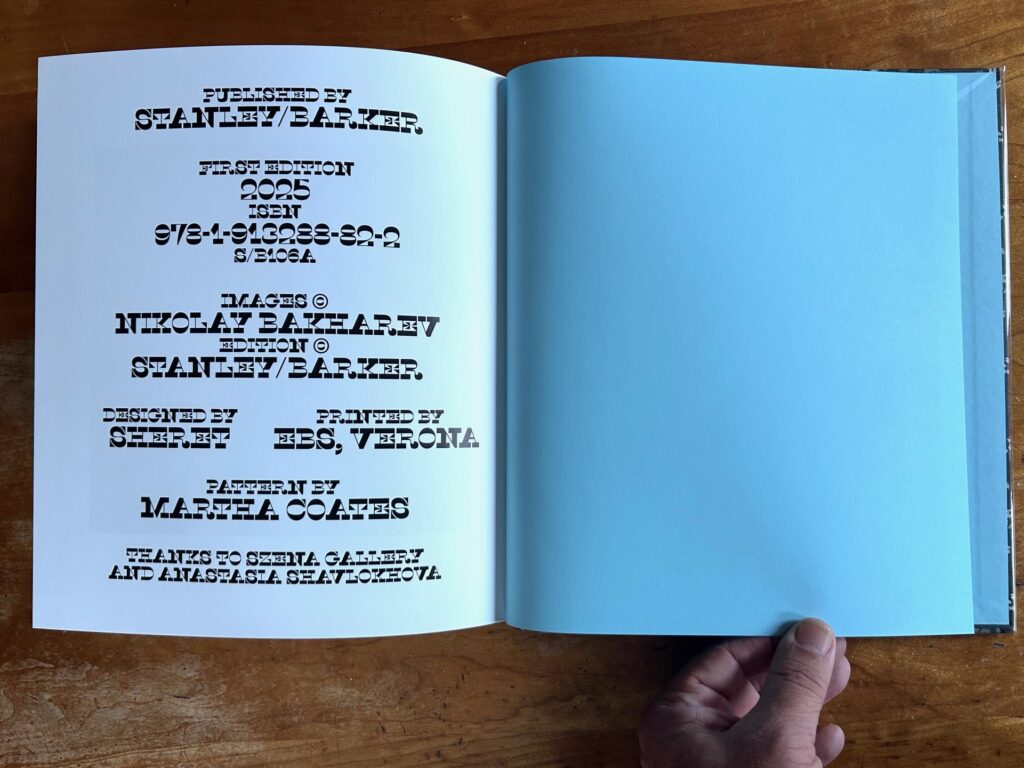 PUBLISHED BY
STANLEY/BARKER
FIRST EDITION
2025
ISBN
978-1-913288-82-2
S/B106A
IMAGES ©
NIKOLAY BAKHAREV
EDITION ©
STANLEY/BARKER
DESIGNED BY
SHERET
PRINTED BY
EBS, VERONA
PATTERN BY
MARTHA COATES
THANKS TO SZENA GALLERY
AND ANASTASIA SHAVLOKHOVA